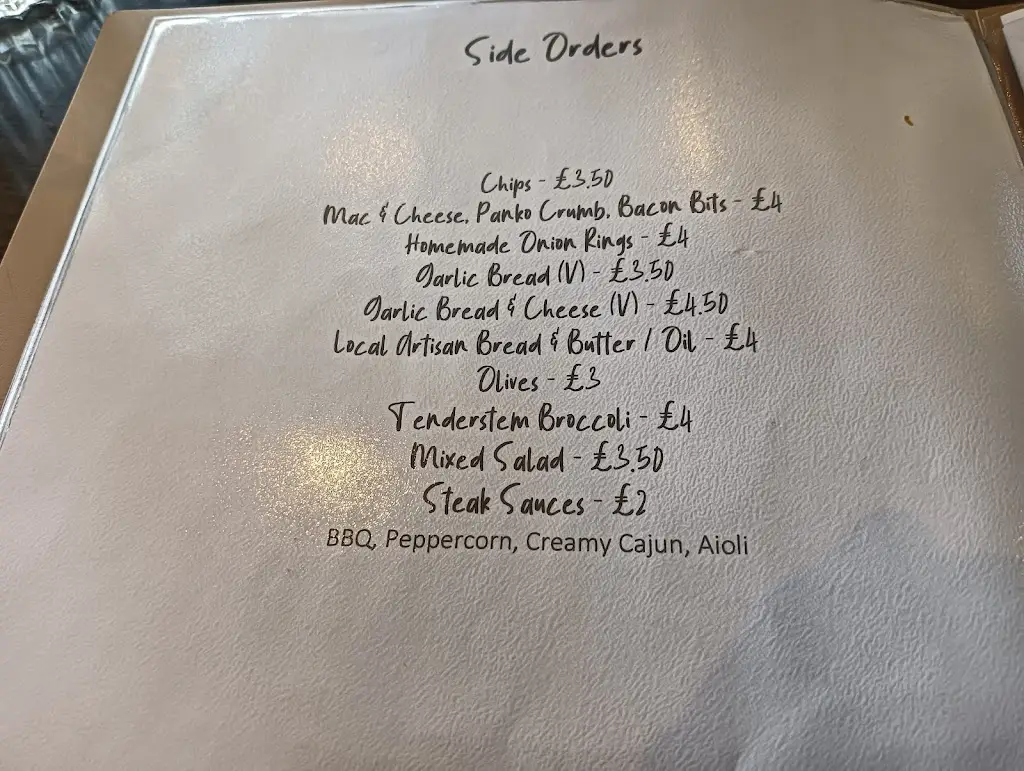 Side Orders
Chips - £3.50
Mac & Cheese, Panko Crumb, Bacon Bits - £4
Homemade Onion Rings - £4
Garlic Bread (V) - £3.50
Garlic Bread & Cheese (V) - £4.50
Local Artisan Bread & Butter / Oil - £4
Olives - £3
Tenderstem Broccoli - £4
Mixed Salad - £3.50
Steak Sauces - £2
BBQ, Peppercorn, Creamy Cajun, Aioli